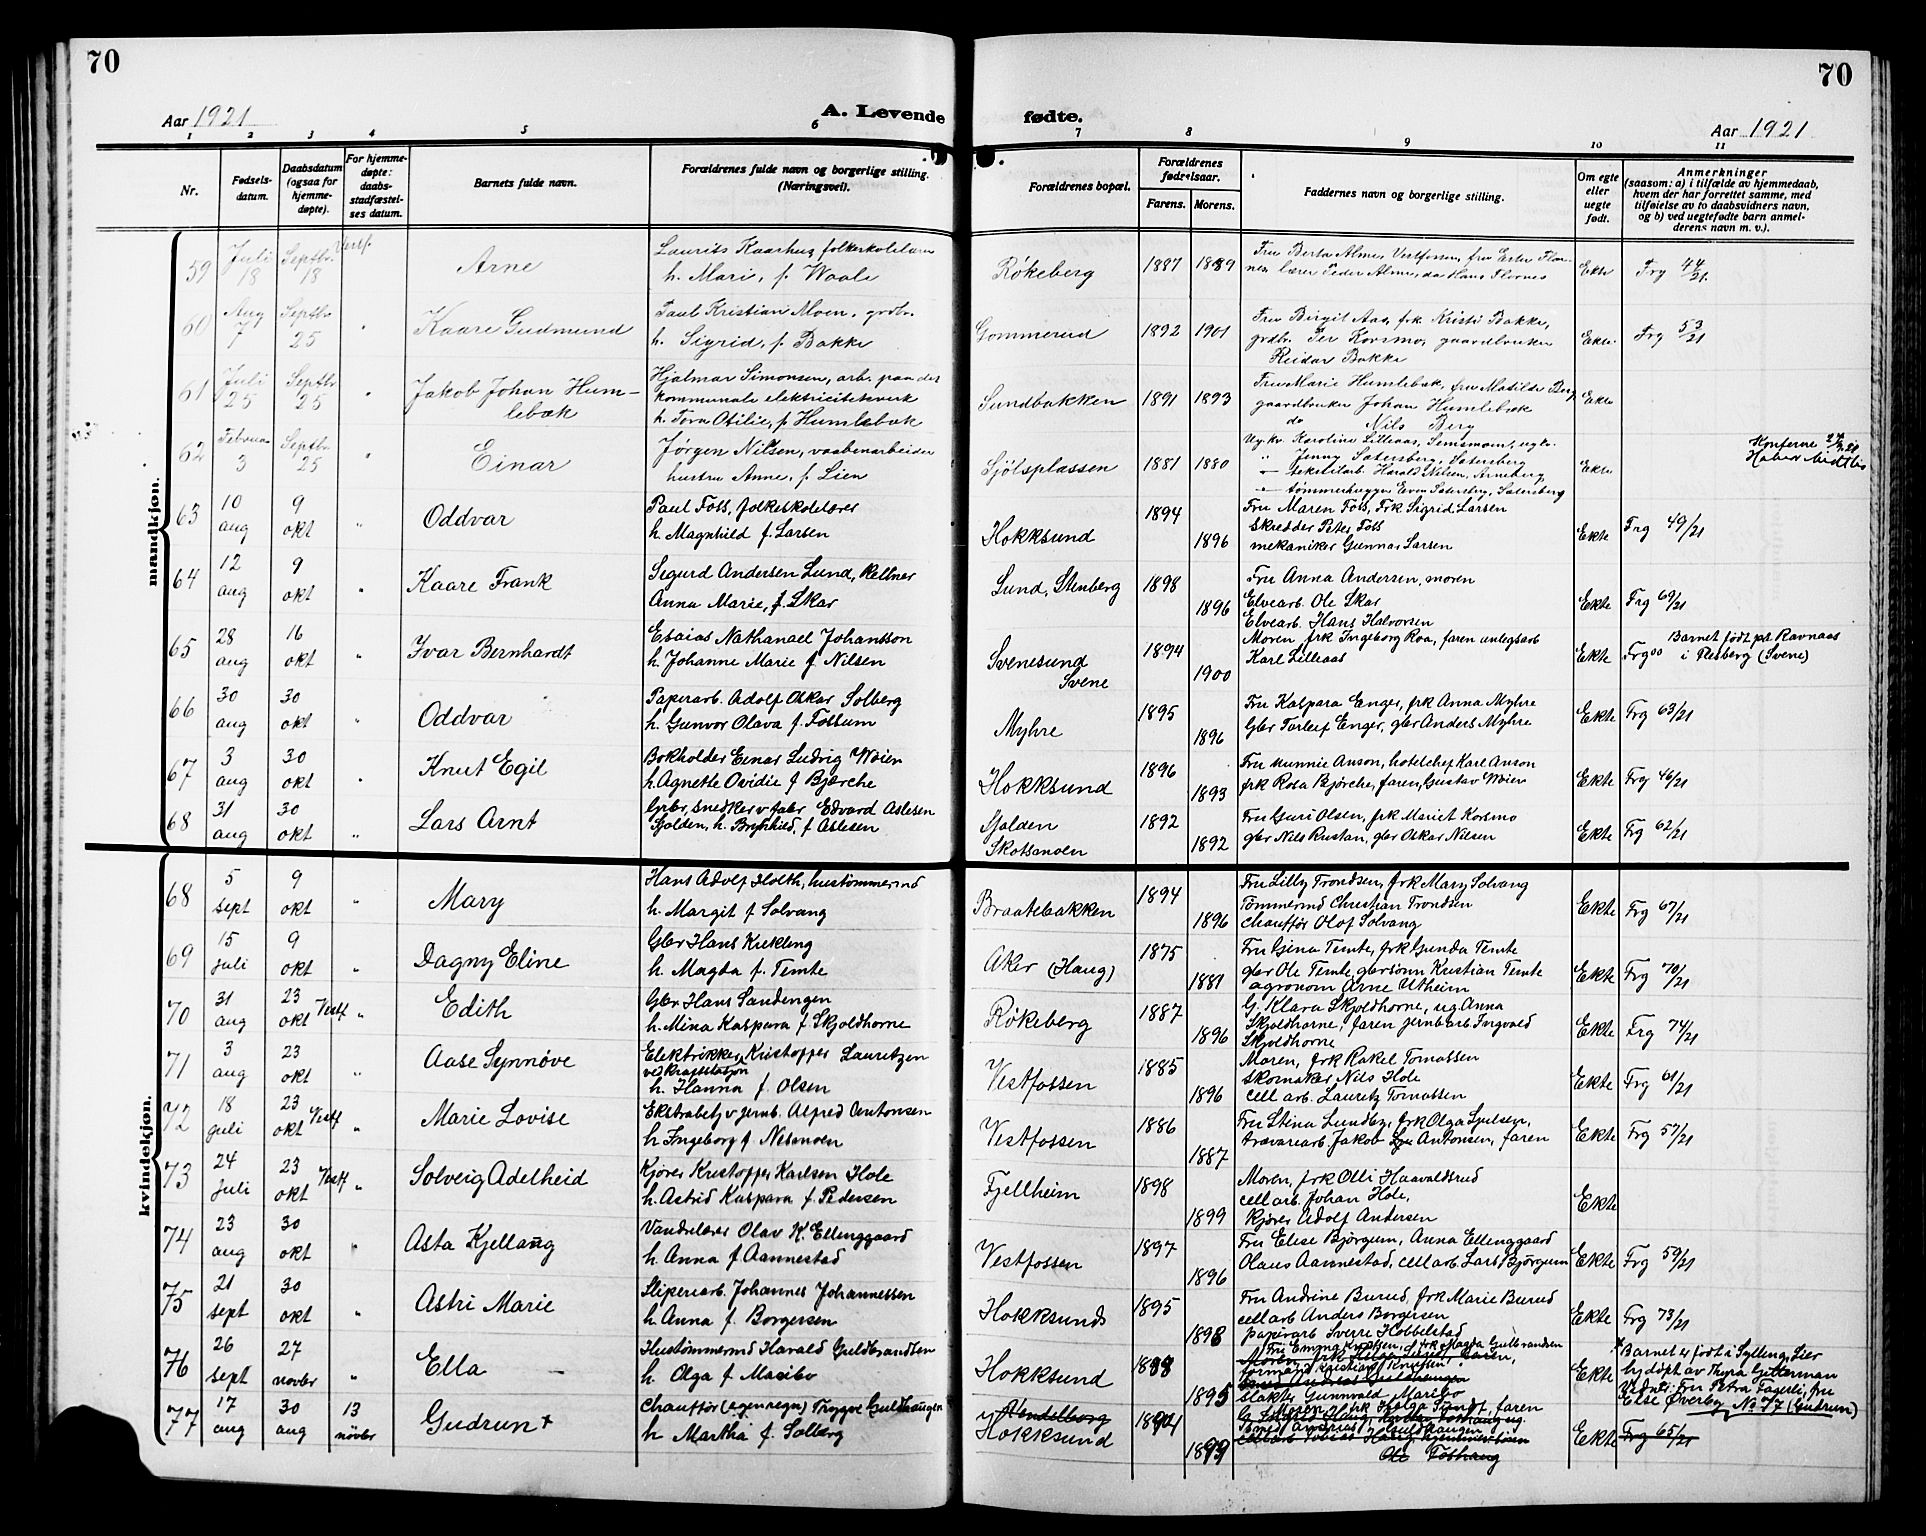 70
70
Aar 1921
A. Levende
fødte.
Aar 1921
1 2 3 4 5 6 7 8 9 10 11
Nr.
Fødsels-
datum.
Daabsdatum
(ogsaa for
hjemme-
døpte).
For hjemme-
døpte:
daabs-
stadfæstel-
ses datum.
Barnets fulde navn.
Forældrenes fulde navn og borgerlige stilling.
(Næringsvei).
Forældrenes bopæl.
Forældrenes
fødselsaar.
Farens. Morens.
Faddernes navn og borgerlige stilling.
Om egte
eller
uegte
født.
Anmerkninger
(saasom: a) i tilfælde av hjemmedaab,
hvem der har forrettet samme, med
tilføielse av to daabsvidners navn,
og b) ved uegtefødte barn anmel-
derens navn m. v.).
mandkjøn.
59 Juli 18 Septbr. 18 Vestf. Arne
Laurits Kaarhus, folkeskolelærer
h. Mari, f. Waale
Røkeberg 1887 1889
Fru Berta Alme, Vestfossen, fru Ester Flor-
nes, lærer Peder Alme, do Hans Flornes
Ekte Frg 44/21
60 Aug 7 Septbr 25 " Kaare Gudmund
Paul Kristian Moen, grdbr.
h. Sigrid, f. Bakke
Gommerud 1892 1901
Fru Birgit Aas, frk Kristi Bakke,
grdbr. Per Korsmo, gaardbruker
Reidar Bakke
Ekte Frg 53/21
61 Juli 25 Septbr 25 " Jakob Johan Hum-
lebæk
Hjalmar Simonsen, arb. paa det
kommunale elektricitetsverk
h. Tora Otilie, f. Humlebæk
Sundbakken 1891 1893
Fru Marie Humlebæk, fru Matilde Berg
gaardbruker Johan Humlebæk
do Nils Berg
Ekte
62 Februar 3 Septbr 25 " Einar
Jørgen Nilsen, vaabenarbeider
hustru Anne, f. Lien
Sjølsplassen 1881 1880
Ug. kv. Karoline Lilleaas, Semsmoen, ugkv.
" Jenny Satersberg, Satersberg
Harald Nilsen, Arneberg
tømmerhugger Even Satersberg, Satersberg
Ekte
63 10 aug 9 okt " Oddvar
Paul Foss, folkeskolelærer
h. Magnhild f. Larsen
Hokksund 1894 1896
Fru Maren Foss, Frk Sigrid Larsen
Skredder Peter Foss
mekaniker Gunnar Larsen
Ekte Frg 49/21
64 12 aug 9 okt " Kaare Frank
Sigurd Andersen Lund, Kellner
Anna Marie, f. Skar
Lund, Stenberg 1898 1896
Fru Anna Andersen, moren
Elvearb. Ole Skar
Elvearb. Hans Halvorsen
Ekte Frg 69/21
65 28 aug 16 okt " Ivar Bernhardt
Esaias Nathanael Johansson
h. Johanne Marie f Nilsen
Svenesund
Svene 1894 1900
Moren frk Ingeborg Roa, faren anlegsarb
Karl Lilleaas
Ekte Frg 00 Barnet født pt Ravnaas
i Flesberg (Svene)
66 30 aug 30 okt " Oddvar
Papirarb. Adolf Oskar Solberg
h. Gunvor Olava f. Fossum
Myhre 1895 1896
Fru Kaspara Enger, frk Anna Myhre
Gbr Torleif Enger, gbr Anders Myhre
Ekte Frg 63/21
67 3 aug 30 okt " Knut Egil
Bokholder Einar Ludvig Woien
h. Agnette Ovidie f Bjørche
Hokksund 1896 1893
Fru Munnie Anson, hotelchef Karl Anson
frk Rosa Bjørche, faren, Gustav Woien
Ekte Frg 46/21
68 31 aug 30 okt " Lars Arnt
Gbr, snedker v fabr Edvard Aslesen
Sjolden, h. Brynhild, f Aslesen
Sjolden
Skotsmoen 1892 1892
Fru Guri Olsen, frk Mariet Korsmo
gbr Nils Rustan, gbr Oskar Nilsen
Ekte Frg 62/21
kvindekjøn.
68 5 sept 9 okt " Mary
Hans Adolf Holth, hustømmermd
h. Margit f Solvang
Braatebakken 1894 1896
Fru Lilly Trondsen, frk Mary Solvang
Tømmermd Christian Trondsen
Chauffør Olof Solvang
Ekte Frg 67/21
69 15 juli 9 okt " Dagny Eline
Gbr Hans Kiekling
h. Magda f. Temte
Aker (Haug) 1875 1881
Fru Gina Temte, frk Gunda Temte
gbr Ole Temte, gbrsønn Kristian Temte
agronom Arne Utheim
Ekte Frg 70/21
70 31 aug 23 okt Vestf " Edith
Gbr Hans Sandengen
h. Mina Kaspara f Skjoldhorne
Røkeberg 1887 1896
G. Klara Skjoldhorne, ug. Anna
Skjoldhorne, faren jernbarb Ingvald
Skjoldhorne
Ekte Frg 74/21
71 3 aug 23 okt " Aase Synnøve
Elektrikker Kristoffer Lauritzen
ved kraftstasjon
h. Hanna f. Olsen
Vestfossen 1885 1896
Moren, frk Rakel Tomassen
Skomaker Nils Hole
cell arb. Lauritz Tomassen
Ekte Frg 61/21
72 18 juli 23 okt Vestf " Marie Lovise
Ekstrabetj v jernb. Alfred Antonsen
h Ingeborg f Nesmoen
Vestfossen 1886 1887
Fru Stina Lundby, frk Olga Sjulsen,
trævarearb Jakob Antonsen, faren
Ekte Frg 57/21
73 24 juli 23 okt Vestf " Solveig Adelheid
Kjører Kristoffer Karlsen Hole
h. Astrid Kaspara f Pedersen
Fjellheim 1898 1899
Moren, frk Olli Haavaldsrud
cell arb. Johan Hole,
kjører Adolf Andersen
Ekte
74 23 aug 30 okt " Asta Kjellaug
Vandrelærer Olav K. Ellenggaard
h. Anna f Aannestad
Vestfossen 1897 1896
Fru Elise Bjørgum, Anna Ellenggaard
Olaus Aannestad, cell arb. Lars Bjørgum
Ekte Frg 59/21
75 21 sept 30 okt " Astri Marie
Sliperiarb. Johannes Johannessen
h. Anna f Borgersen
Hokksund 1895 1898
Fru Andrine Burud, frk Marie Burud
cell arb Anders Borgersen
papirarb Sverre Hobbelstad
Ekte Frg 73/21
76 26 sept 27 novbr " Ella
Hustømmermd Harald Guldbrandsen
h. Olga f Masibo
Hokksund 1888 1895
Fru Emma Knutsen, frk Magda Gulbrandsen
formand Kristian Knutsen
slakter Gunnvald Maribo
Ekte
77 17 aug 30 aug 13 novbr Gudrun +
Chauffør (egen regn) Trygve Guldhaugen
h Martha f. Solberg
Vendelborg
Hokksund 1894 1899
Moren, frk Helga Sandt, faren
Ole Foshaug
Ekte Frg 65/21
* Barnet er født i Sylling, Lier
hj.døpt av Thyra Gitterman
Vidner: Fru Petra Fagerli, fru
Else Øverby No 77 (Gudrun)